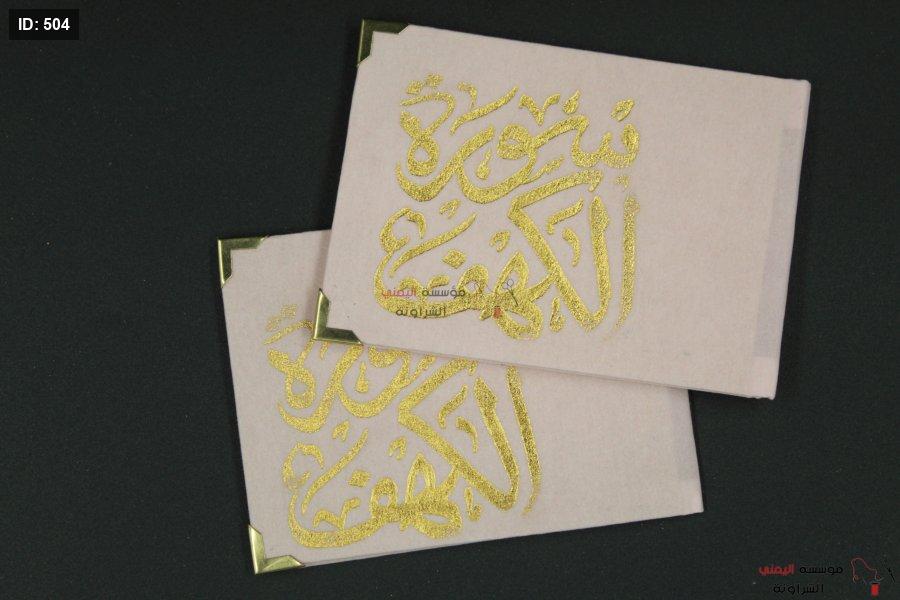 ID: 504
سورة
الكهف
مؤسسة اليمني
الشراونة
سورة
الكهف
مؤسسة اليمني
الشراونة